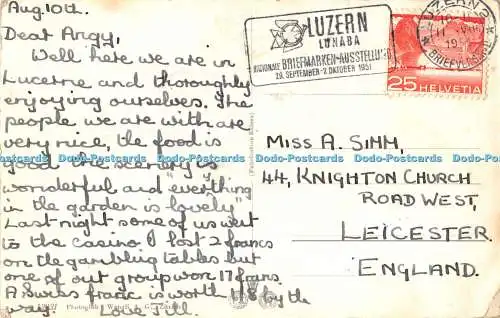 Aug. 10th.
Dear Angy,
Well here we are in
Lucerne and thoroughly
enjoying ourselves. The
people we are with are
very nice, the food is
good the scenery is
wonderful and "everything
in the garden is lovely"
Last night some of us went
to the casino. I lost 2 francs
on the gambling tables but
one of our group won 17 francs.
A Swiss franc is worth 1/8 by the
way.
LUZERN
LUNABA
REGIONALE BRIEFMARKEN-AUSSTELLUNG
29. SEPTEMBER - 2. OKTOBER 1951
LUZERN 2
BRIEFVERSAND
25 HELVETIA
MISS A. SIMM,
44, KNIGHTON CHURCH
ROAD WEST,
LEICESTER,
ENGLAND.
Dodo-Postcards Dodo-Postcards Dodo-Postcards Dodo-Postcards Dodo-Postcards
Dodo-Postcards Dodo-Postcards Dodo-Postcards Dodo-Postcards